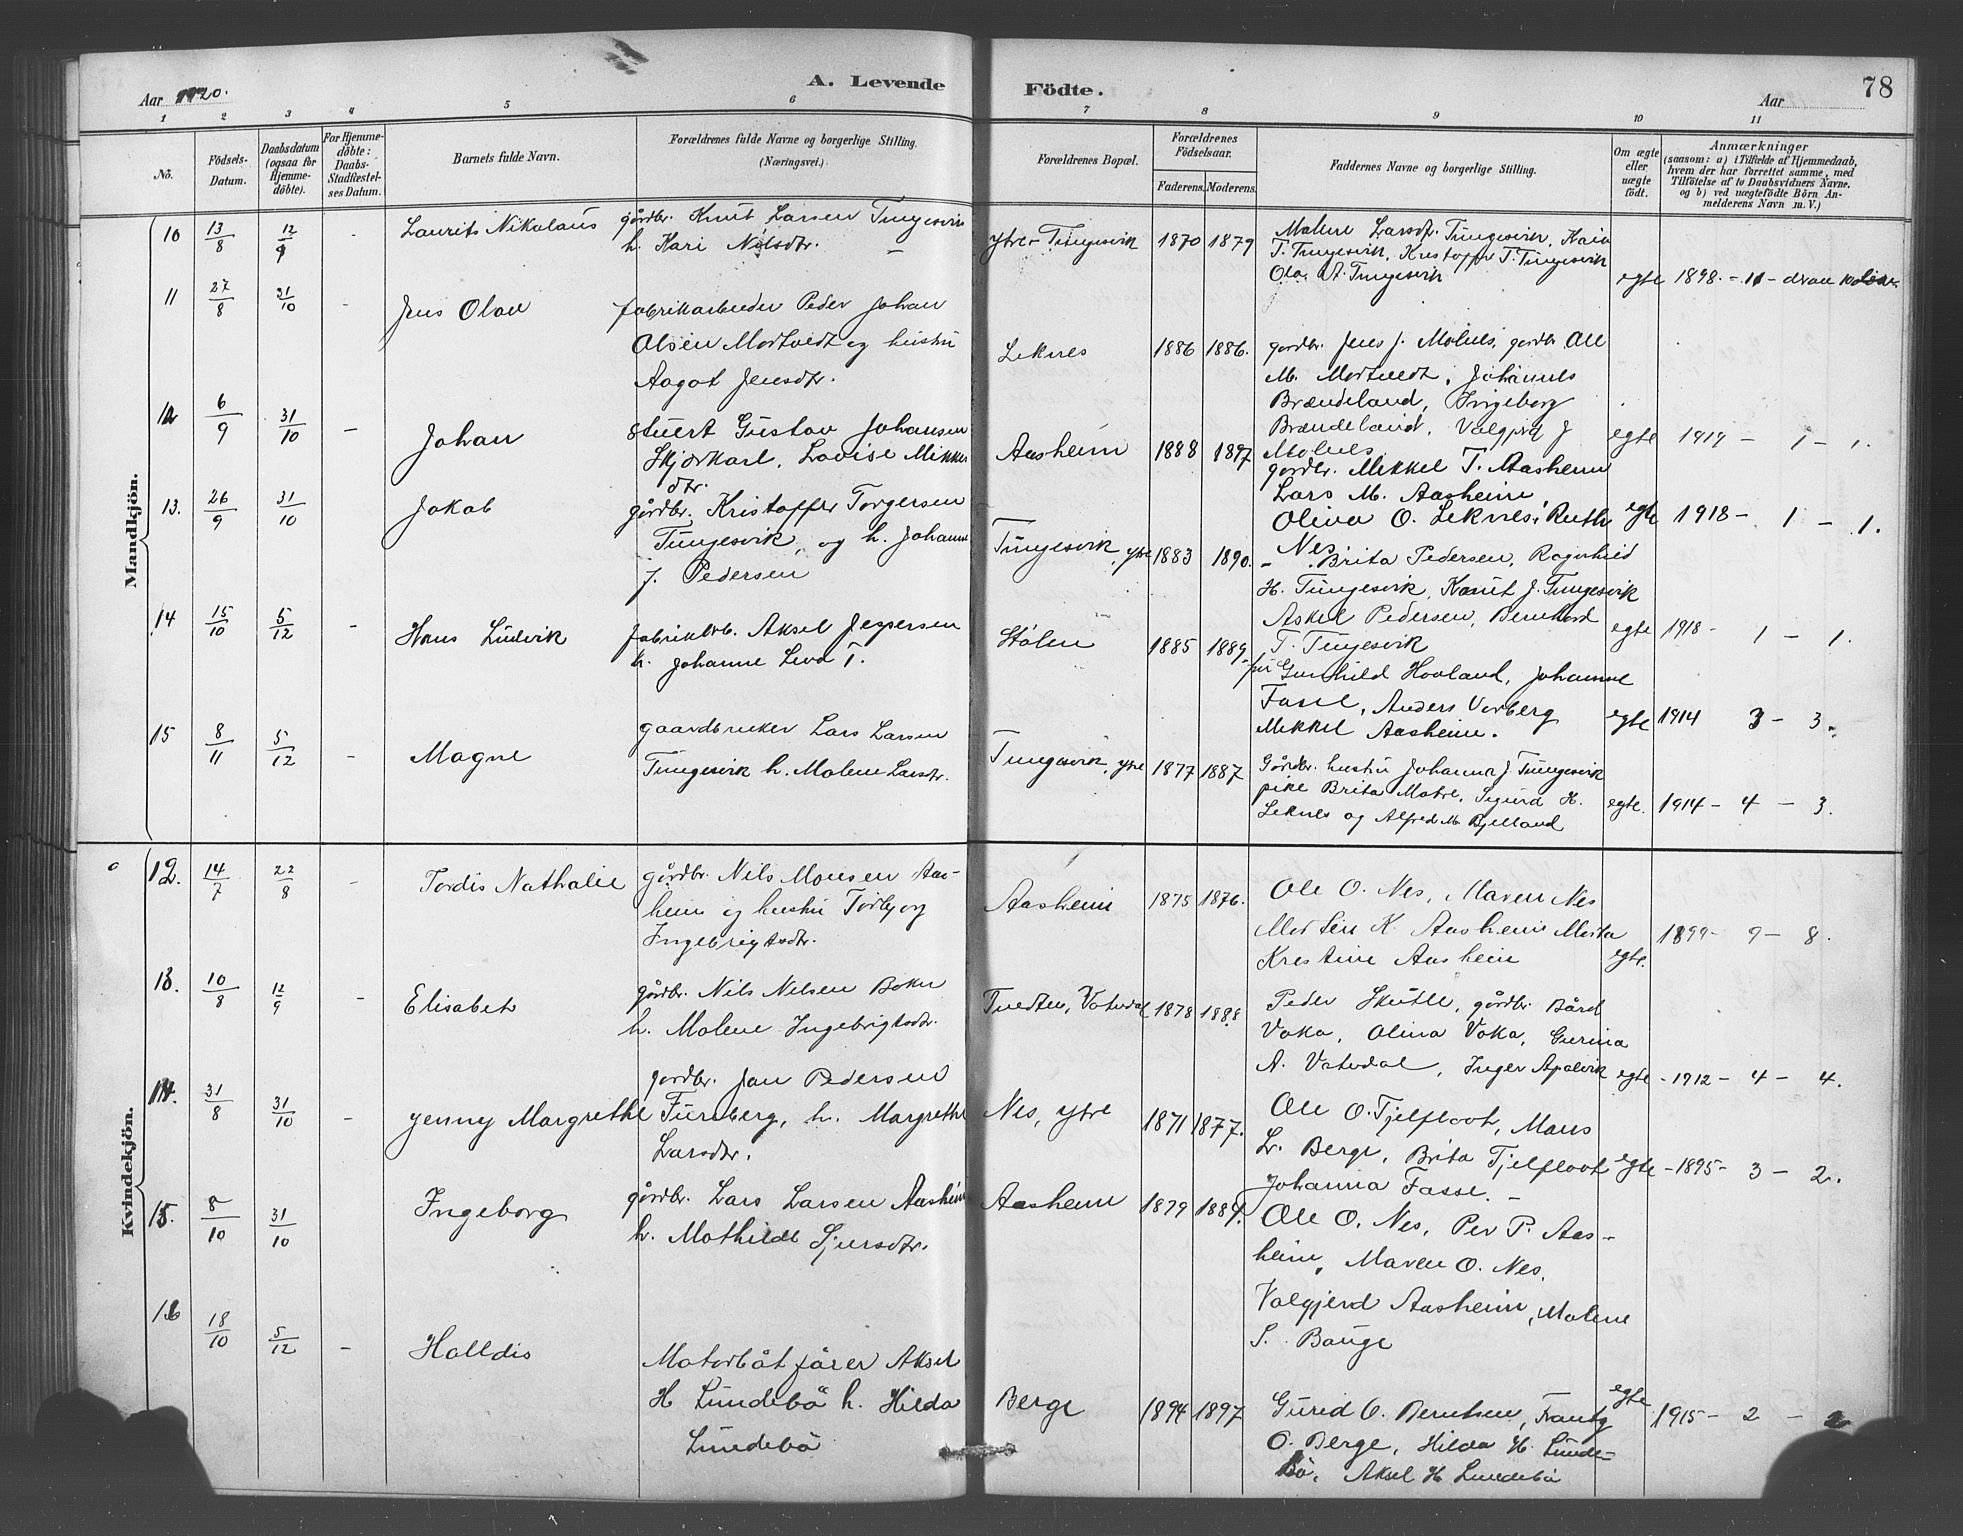 Aar 1920. A. Levende Födte. Aar 78
1 2 3 4 5 6 7 8 9 10 11
No. Födsels-Datum. Daabsdatum (ogsaa för Hjemmedöbte). For Hjemmedöbte: Daabs-Stadfæstelses Datum. Barnets fulde Navn. Forældrenes fulde Navne og borgerlige Stilling. (Næringsvei.) Forældrenes Bopæl. Forældrenes Födselsaar. Faderens. Moderens. Faddernes Navne og borgerlige Stilling. Om ægte eller uægte födt. Anmærkninger (saasom: a) i Tilfælde af Hjemmedaab, hvem der har forrettet samme, med Tilföielse af to Daabsvidners Navne, og b) ved uægtefödte Börn Anmelderens Navn m. V.)
Mandkjön.
10 13/8 12/9 - Laurits Nikolaus gårdbr. Knut Larsen Tungesvik
h. Kari Nilsdtr. - ytre Tungesvik 1870 1879 Malene Larsdtr. Tungesvik, Kaia
T. Tungesvik, Kristoffer T. Tungesvik
Ola A. Tungesvik egte 1898 - 11 -
11 27/8 31/10 - Jens Olav fabrikarbeider Peder Johan
Olsen Mortvedt og hustru
Aagot Jensdtr. Leknes 1886 1886. gardbr. Jens J. Molnes, gardbr. Ole
M. Mortvedt, Johannes
Brændeland, Ingeborg
Brændeland, Valgjerd J.
Molnes egte 1919 - 1 - 1.
12 6/9 31/10 - Johan Stuert Gustav Johansen
Skjørkarl, Lovise Mikkels
dtr. Aasheim 1888 1897 gardbr. Mikkel T. Aasheim
Lars M. Aasheim,
Oliva O. Leknes, Ruth
Nes egte 1918 - 1 - 1.
13. 26/9 31/10 - Jakob gårdbr. Kristoffer Torgersen
Tungesvik, og h. Johanne
J. Pedersen Tungesvik, ytre 1883 1890. Brita Pedersen, Ragnhild
H. Tungesvik, Knut J. Tungesvik
Askel Pedersen, Bernhard
T. Tungesvik egte 1918 - 1 - 1.
14 15/10 5/12 - Hans Ludvik fabrikarb. Aksel Jespersen
h. Johanne Leva T. Stølen 1885 1889 Gunhild Hovland, Johanne
Fasse, Anders Varberg
Mikkel Aasheim. egte 1914 3 - 3.
15 8/11 5/12 - Magne gaardbruker Lars Larsen
Tungesvik h. Malene Larsdtr. Tungesvik, ytre 1877 1887 Gårdbr. hustru Johanna J. Tungesvik
pike Brita Matre, Sigurd H.
Leknes og Alfred M. Bjelland egte. 1914 - 4 - 3.
Kvindekjön.
12. 14/7 22/8 - Tordis Nathalie gårdbr. Nils Monsen Aas-
heim og hustru Torbjørg
Ingebrigtsdtr. Aasheim 1875 1876. Ole O. Nes, Maren Nes
Morten K. Aasheim Marta
Kristine Aasheim egte. 1899 - 9 - 8.
13. 10/8 12/9 - Elisabet gårdbr. Nils Nilsen Boka
h. Malene Ingebrigtsdtr. Tvedten, Vatsdal 1878 1888 Peder Skutle, gårdbr. Bård
Vaka, Olina Vaka, Gurina
A. Vatsdal, Inger Apalvik egte - 1912 - 4 - 4.
14. 31/8 31/10 - Jenny Margrethe gardbr. Jan Pedersen
Furuberg, h. Margrethe
Larsdtr. Nes, ytre 1871 1877. Ole O. Tjelflaat, Mons
L. Berge, Brita Tjelflaat
Johanna Fasse. - egte - 1895 - 3 - 2.
15. 8/10 31/10 Ingeborg gårdbr. Lars Larsen Aasheim
h. Mathilde Sjursdtr. Aasheim 1879 1884. Ole O. Nes, Per P. Aas-
heim, Maren O. Nes,
Valgjerd Aasheim, Malene
S. Bauge
16 18/10 5/12 - Halldis Motorbåtfører Aksel
H Lundebø h. Hilda
Lundebø Berge 1894 1897 Gurid O. Berntsen, Frantz
O. Berge, Hilda H. Lunde-
bø, Aksel H Lundebø egte 1915 - 2 - 2